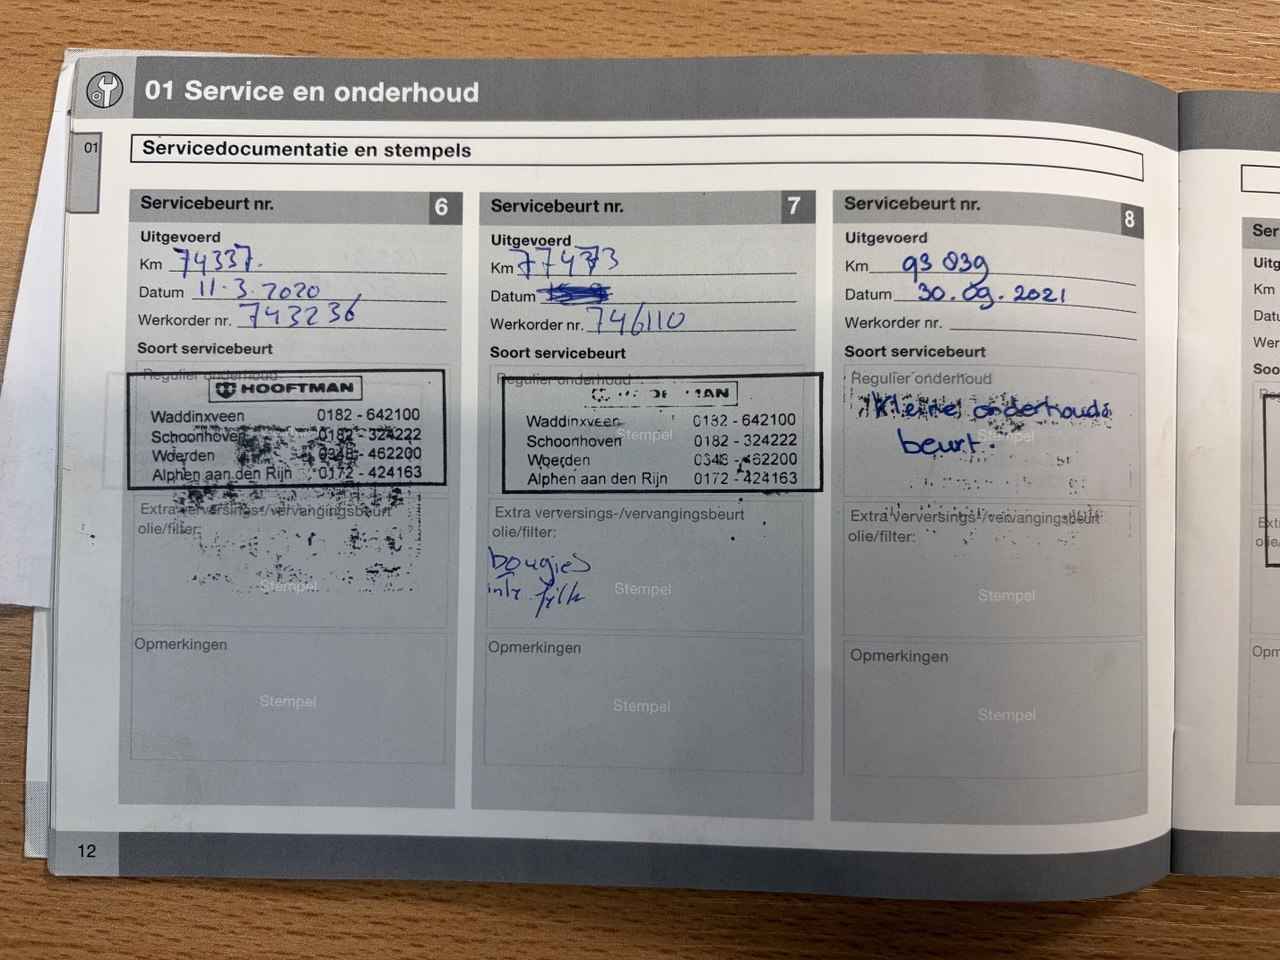 01 Service en onderhoud
01
Servicedocumentatie en stempels
Servicebeurt nr. 6
Uitgevoerd
Km 74337.
Datum 11-3-2020
Werkorder nr. 743236
Soort servicebeurt
Regulier onderhoud
HOOFTMAN
Waddinxveen 0182 - 642100
Schoonhoven 0182 - 324222
Woerden 0348 - 462200
Alphen aan den Rijn 0172 - 424163
Extra verversings-/vervangingsbeurt
olie/filter:
Stempel
Opmerkingen
Stempel
Servicebeurt nr. 7
Uitgevoerd
Km 77473
Datum
Werkorder nr. 746110
Soort servicebeurt
Regulier onderhoud
Waddinxveen 0182 - 642100
Stempel
Schoonhoven 0182 - 324222
Woerden 0348 - 462200
Alphen aan den Rijn 0172 - 424163
Extra verversings-/vervangingsbeurt
olie/filter:
bougies
Stempel
Opmerkingen
Stempel
Servicebeurt nr. 8
Uitgevoerd
Km 93 839
Datum 30.09.2021
Werkorder nr.
Soort servicebeurt
Regulier onderhoud
Kleine onderhouds
beurt.
Extra verversings-/vervangingsbeurt
olie/filter:
Stempel
Opmerkingen
Stempel
12
Ser
Uitg
Km
Datu
Wer
Soo
Opm